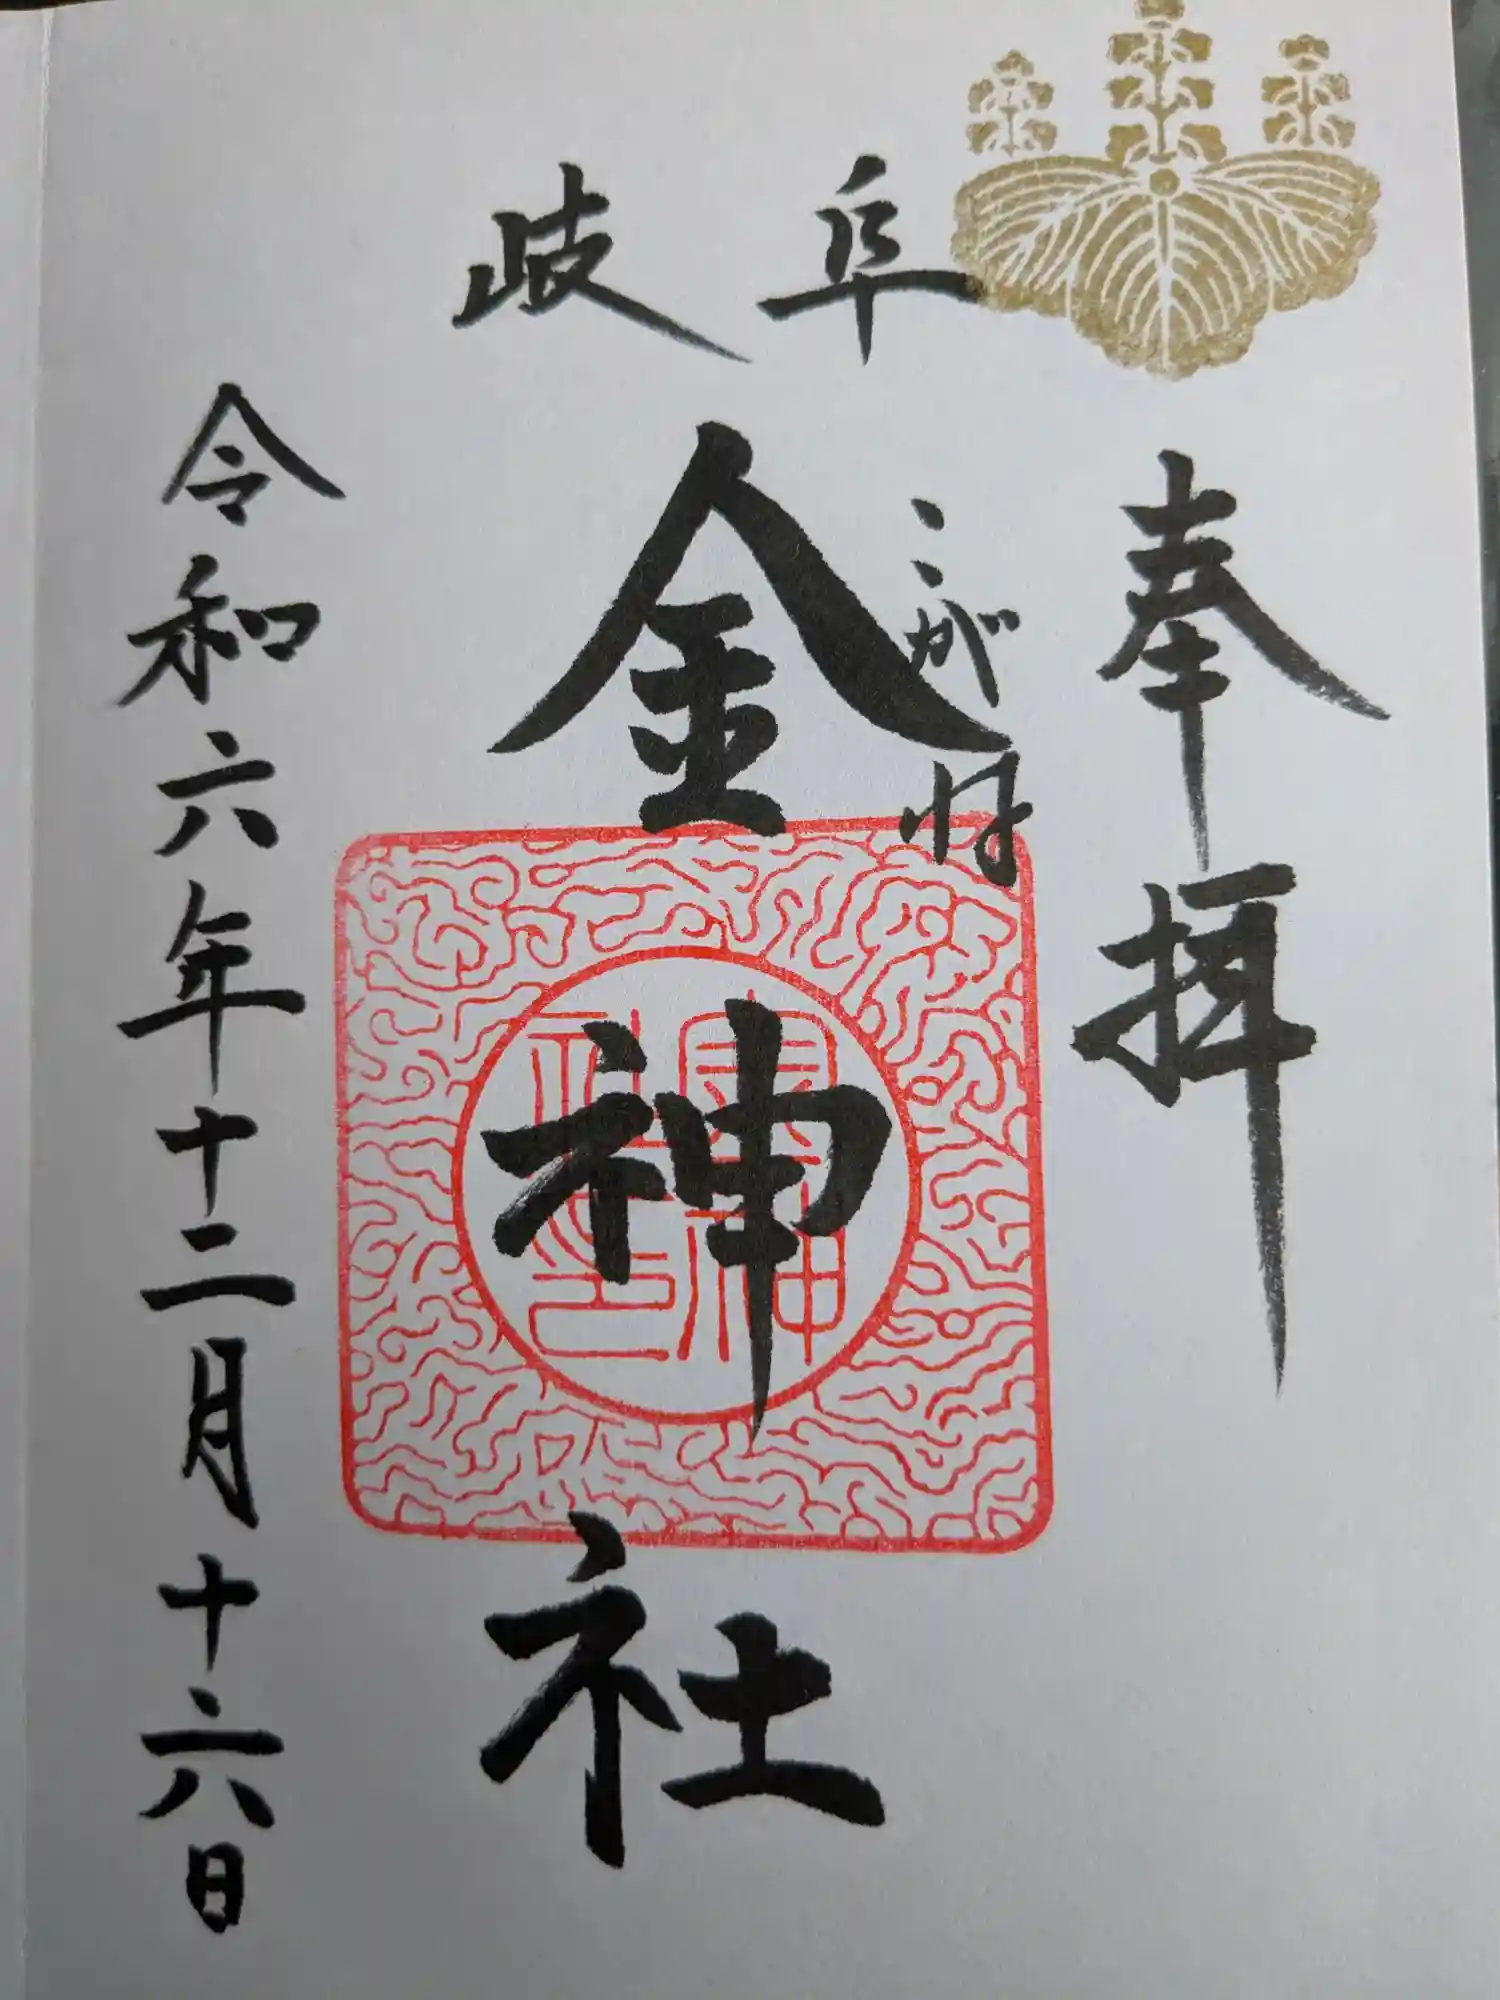 奉拝
岐阜
こがね
金神社
令和六年十二月十六日